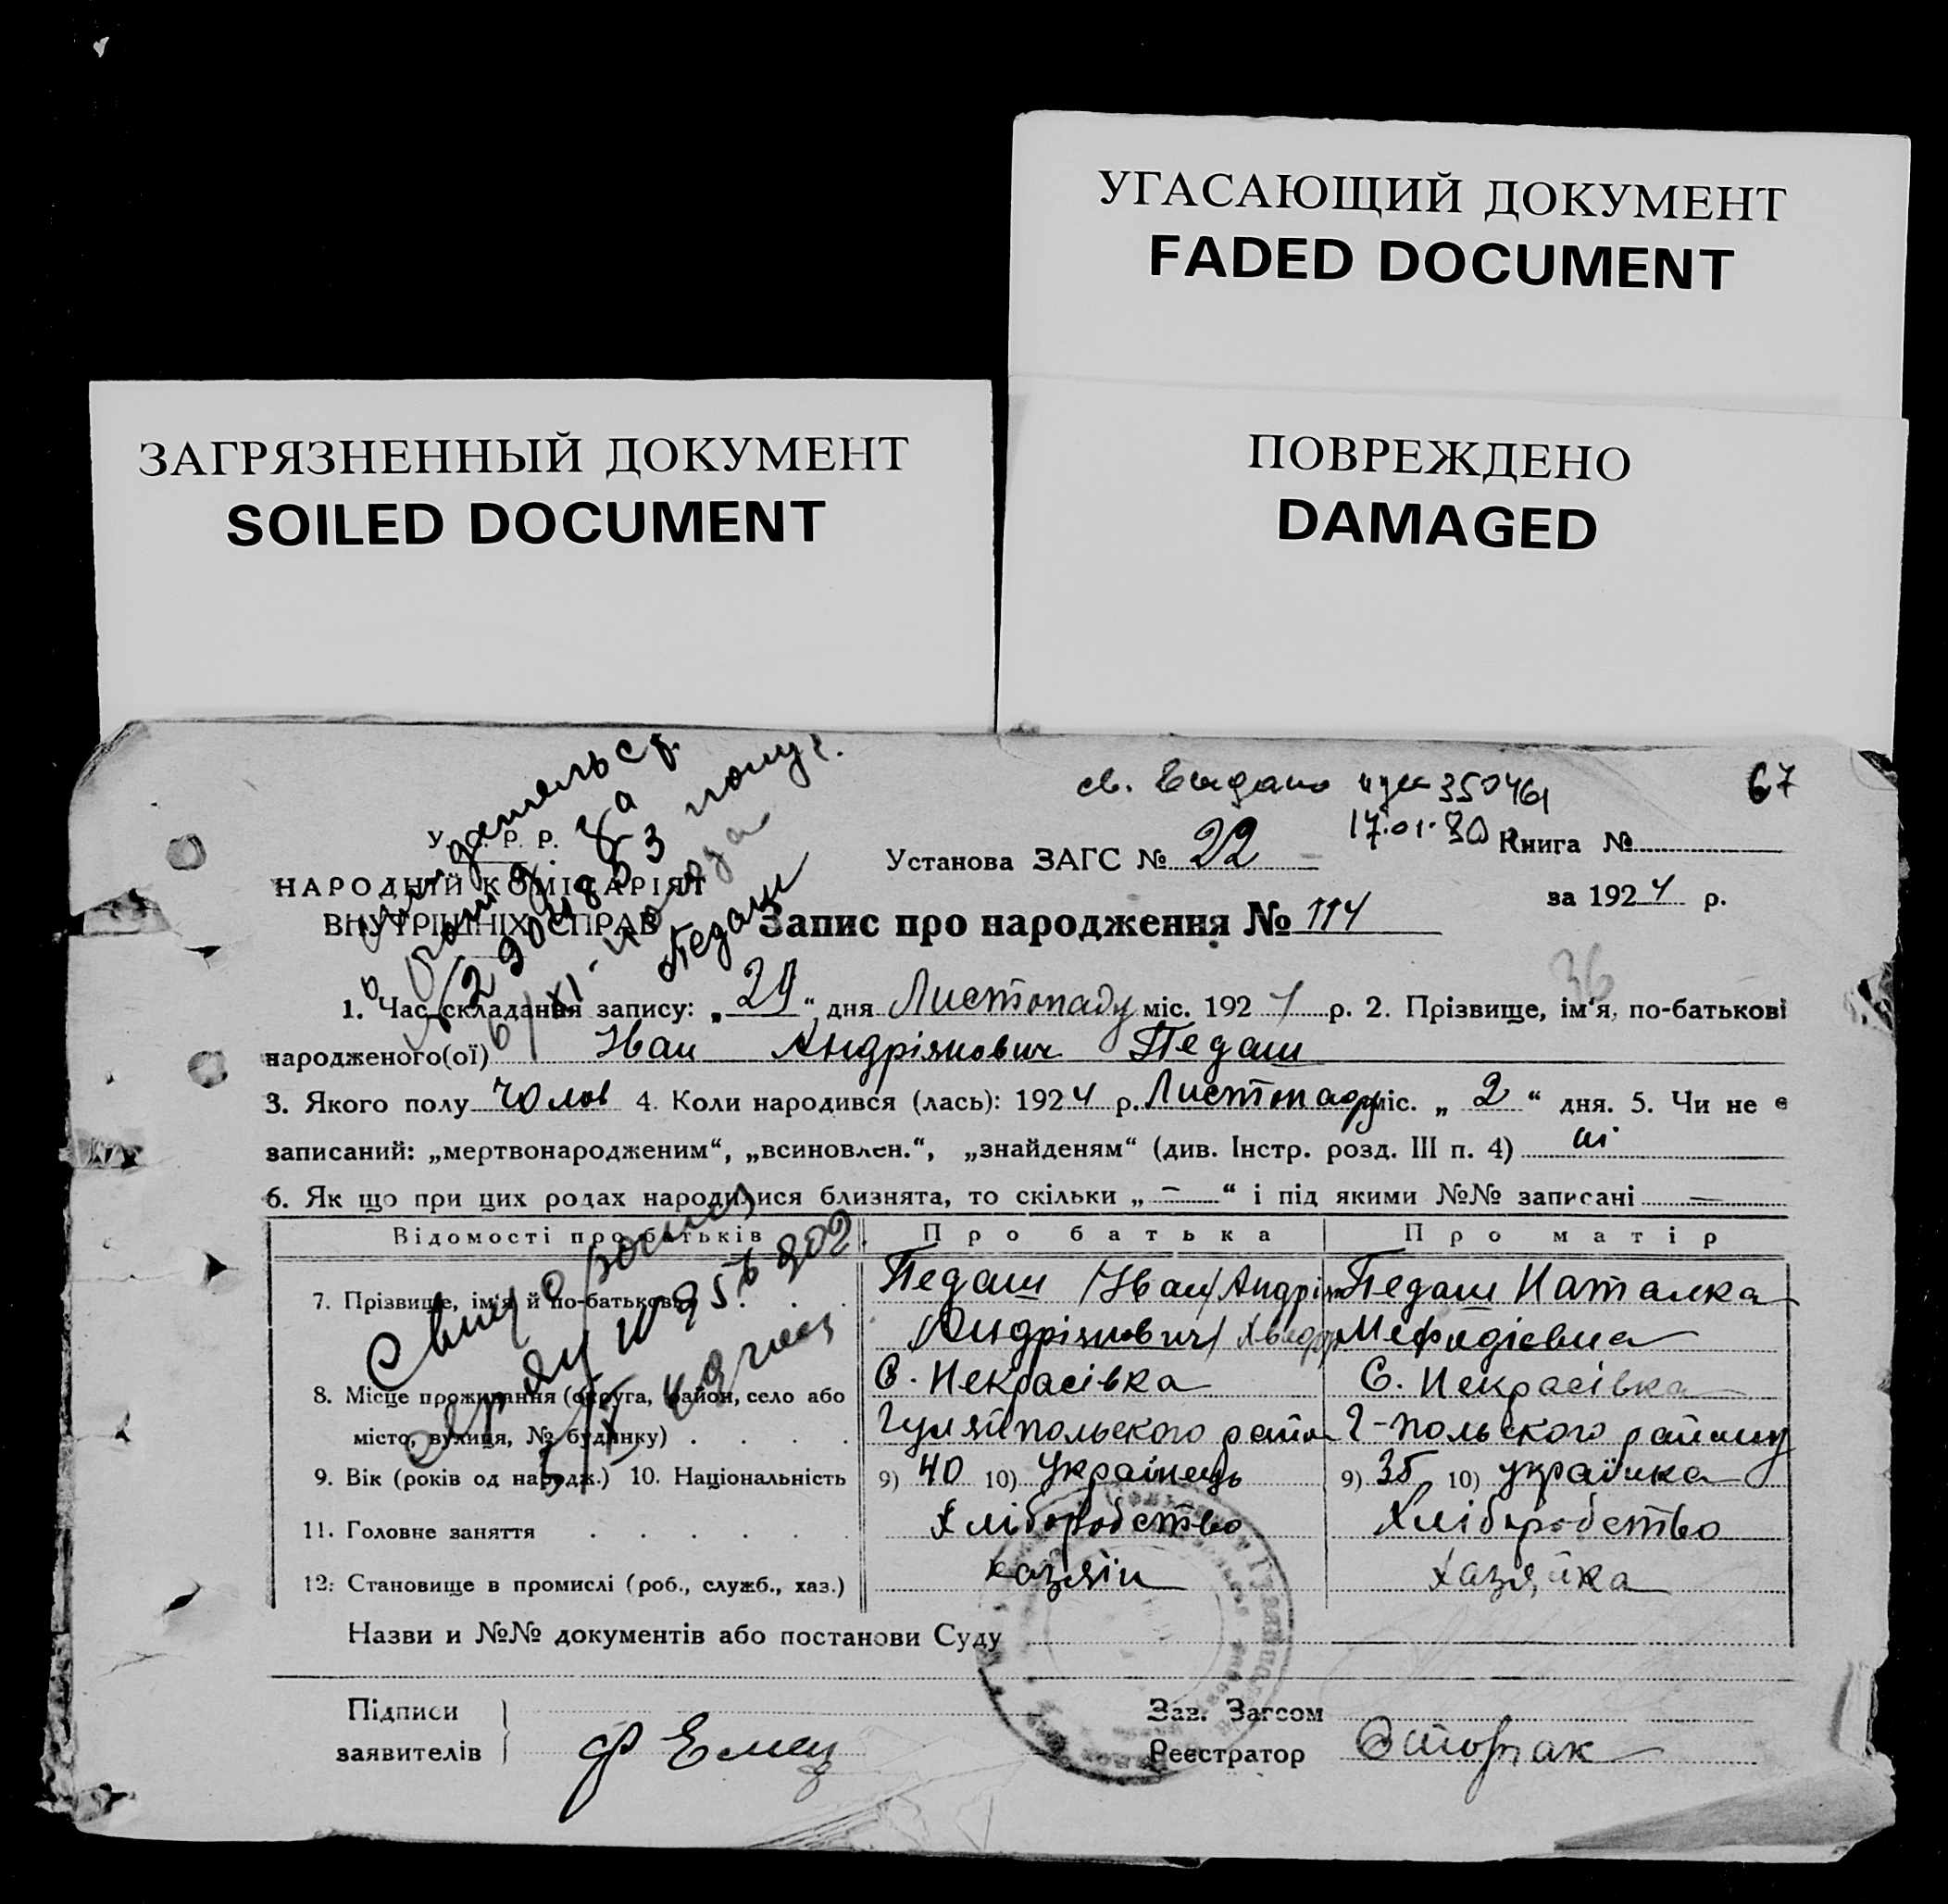 УГАСАЮЩИЙ ДОКУМЕНТ
FADED DOCUMENT
ЗАГРЯЗНЕННЫЙ ДОКУМЕНТ
SOILED DOCUMENT
ПОВРЕЖДЕНО
DAMAGED
св. выдано 350461
67
17.01.80
У. Р. Р.
НАРОДНІЙ КОМІСАРІЯТ
ВНУТРІШНІХ СПРАВ
Педаш
Установа ЗАГС № 22
Книга №
за 1924 р.
Запис про народження № 114
36
1. Час складання запису: „29“ дня Листопаду міс. 1924 р. 2. Прізвище, ім'я, по-батькові
народженого(ої) Иван Андріянович Педаш
3. Якого полу чолов 4. Коли народився (лась): 1924 р. Листопаду міс. „2“ дня. 5. Чи не є
записаний: „мертвонародженим“, „всиновлен.“, „знайденям“ (див. Інстр. розд. III п. 4) ні
6. Як що при цих родах народилися близнята, то скільки „ — “ і під якими №№ записані —
Відомості про батьків Про батька Про матір
7. Прізвище, ім'я й по-батькові Педаш /Иван/ Педаш Наталка
/Андріянович/ Мефодіевна
8. Місце проживання (округа, район, село або С. Некрасівка С. Некрасівка
місто, вулиця, № будинку) Гуляйпольского Г-польского району
9. Вік (років од народж.) 10. Національність 9) 40 10) українець 9) 35 10) українка
11. Головне заняття Хліборобство Хліборобство
12. Становище в промислі (роб., служб., хаз.) хазяін хазяйка
Назви и №№ документів або постанови Суду
Підписи
заявителів
Ф Емец
Зав. Загсом
Реєстратор